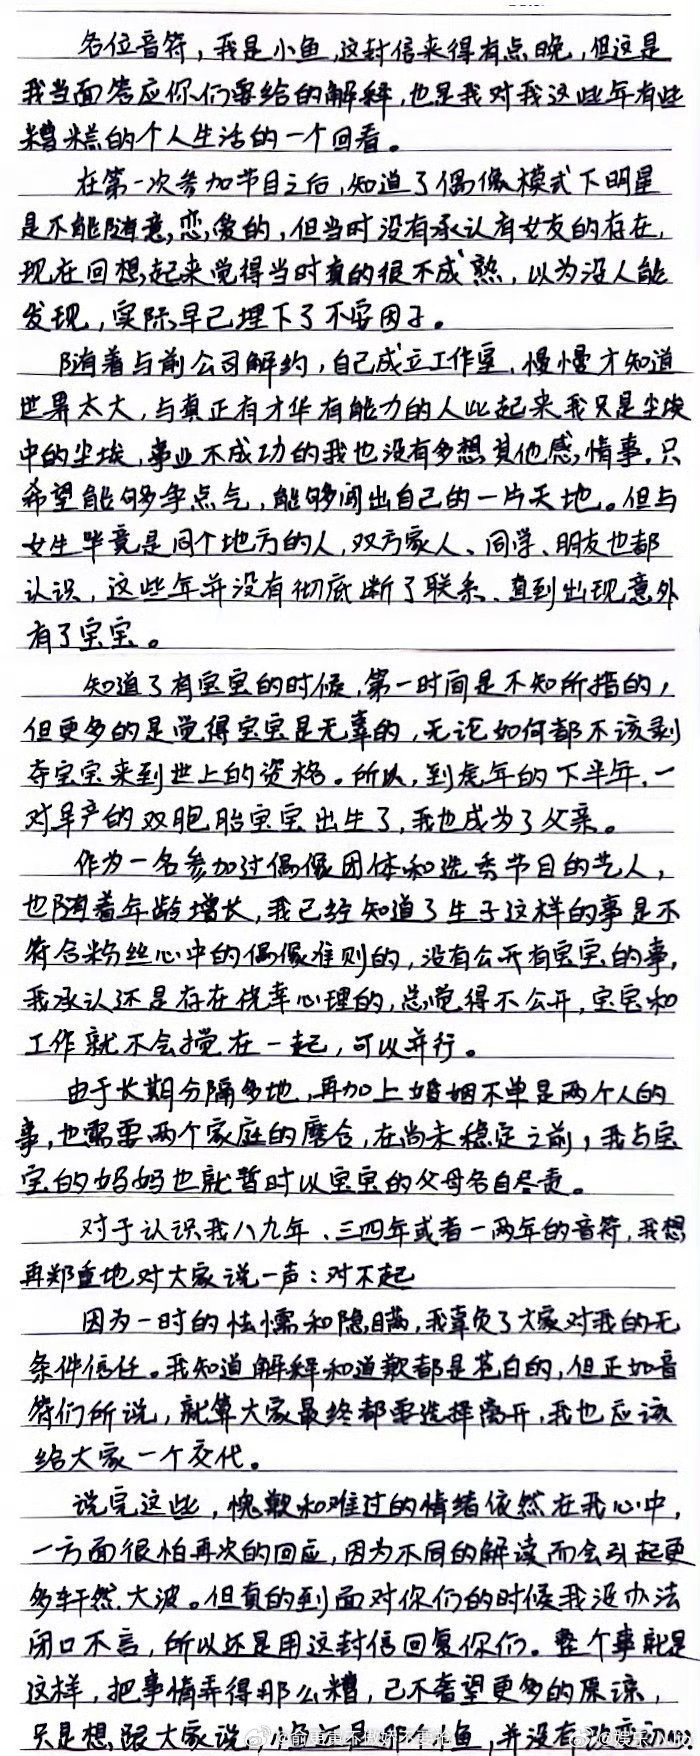 各位音符，我是小鱼，这封信来得有点晚，但这是
我当面答应你们要给的解释，也是我对我这些年有些
糟糕的个人生活的一个回看。
在第一次参加节目之后，知道了偶像模式下明星
是不能随意恋爱的，但当时没有承认有女友的存在，
现在回想起来觉得当时真的很不成熟，以为没人能
发现，实际早已埋下了不安因子。
随着与前公司解约，自己成立工作室，慢慢才知道
世界太大，与真正有才华有能力的人比起来我只是尘埃
中的尘埃，事业不成功的我也没有多想其他感情事，只
希望能够争点气，能够闯出自己的一片天地。但与
女生毕竟是同个地方的人，双方家人、同学、朋友也都
认识，这些年并没有彻底断了联系、直到出现意外
有了宝宝。
知道了有宝宝的时候，第一时间是不知所措的，
但更多的是觉得宝宝是无辜的，无论如何都不该剥
夺宝宝来到世上的资格。所以，到虎年的下半年，一
对早产的双胞胎宝宝出生了，我也成为了父亲。
作为一名参加过偶像团体和选秀节目的艺人，
也随着年龄增长，我已经知道了生子这样的事是不
符合粉丝心中的偶像准则的，没有公开有宝宝的事，
我承认还是存在侥幸心理的，总觉得不公开，宝宝和
工作就不会搅在一起，可以并行。
由于长期分隔多地，再加上婚姻不单是两个人的
事，也需要两个家庭的磨合，在尚未稳定之前，我与宝
宝的妈妈也就暂时以宝宝的父母各自尽责。
对于认识我八九年、三四年或者一两年的音符，我想
再郑重地对大家说一声：对不起
因为一时的怯懦和隐瞒，我辜负了大家对我的无
条件信任。我知道解释和道歉都是苍白的，但正如音
符们所说，就算大家最终都要选择离开，我也应该
给大家一个交代。
说完这些，愧歉和难过的情绪依然在我心中，
一方面很怕再次的回应，因为不同的解读而会引起更
多轩然大波。但真的到面对你们的时候我没办法
闭口不言，所以还是用这封信回复你们。整个事就是
这样，把事情弄得那么糟，已不奢望更多的原谅，
只是想跟大家说，还是那个小鱼，并没有改变初